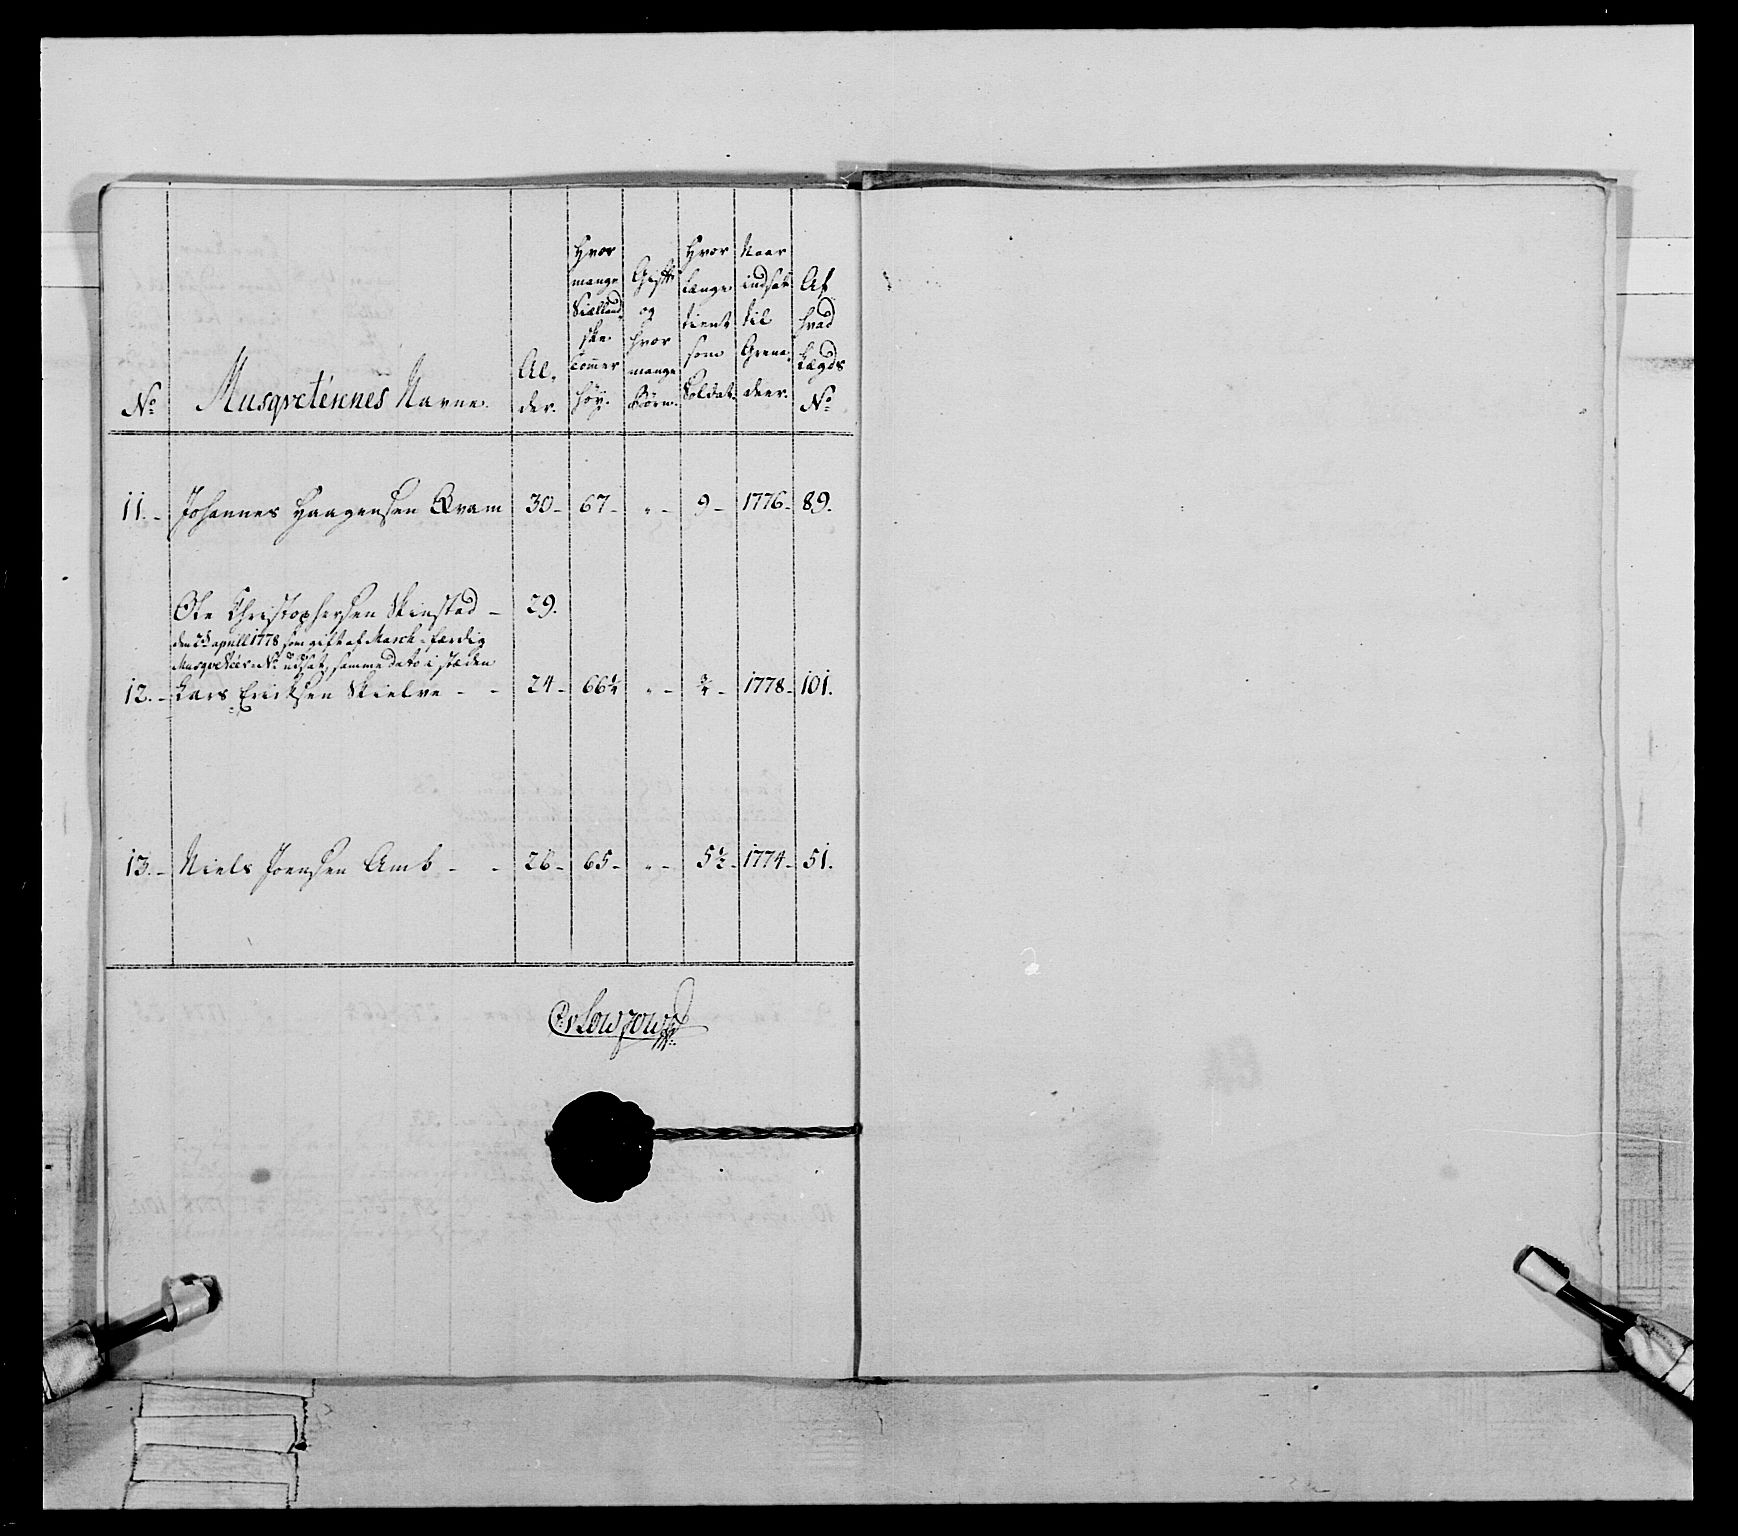 No
Musqvetérernes Navne.
Al,
der.
Hvor
mange
Siælland,
ske
Tommer
høy.
Gift
og
hvor
mange
Børn.
Hvor
længe
tient
som
Soldat.
Naar
indsat
til
Grena,
deer.
Af
hvad
Lægds
No
11. Johannes Haagensen Qvam 30 - 67 - " - 9 - 1776 - 89.
Ole Christophersen Skinstad - 29.
den 25 april 1778 som gift af March-færdig
Musqveteer No udsat, samme dato i stæden
12. Lars Ericksen Skielve - - 24 - 66¼ " - ¾ - 1778 - 101.
13. Niels Joensen Amb - - 26 - 65 - " - 5½ - 1774 - 51.
C. v Lowzow